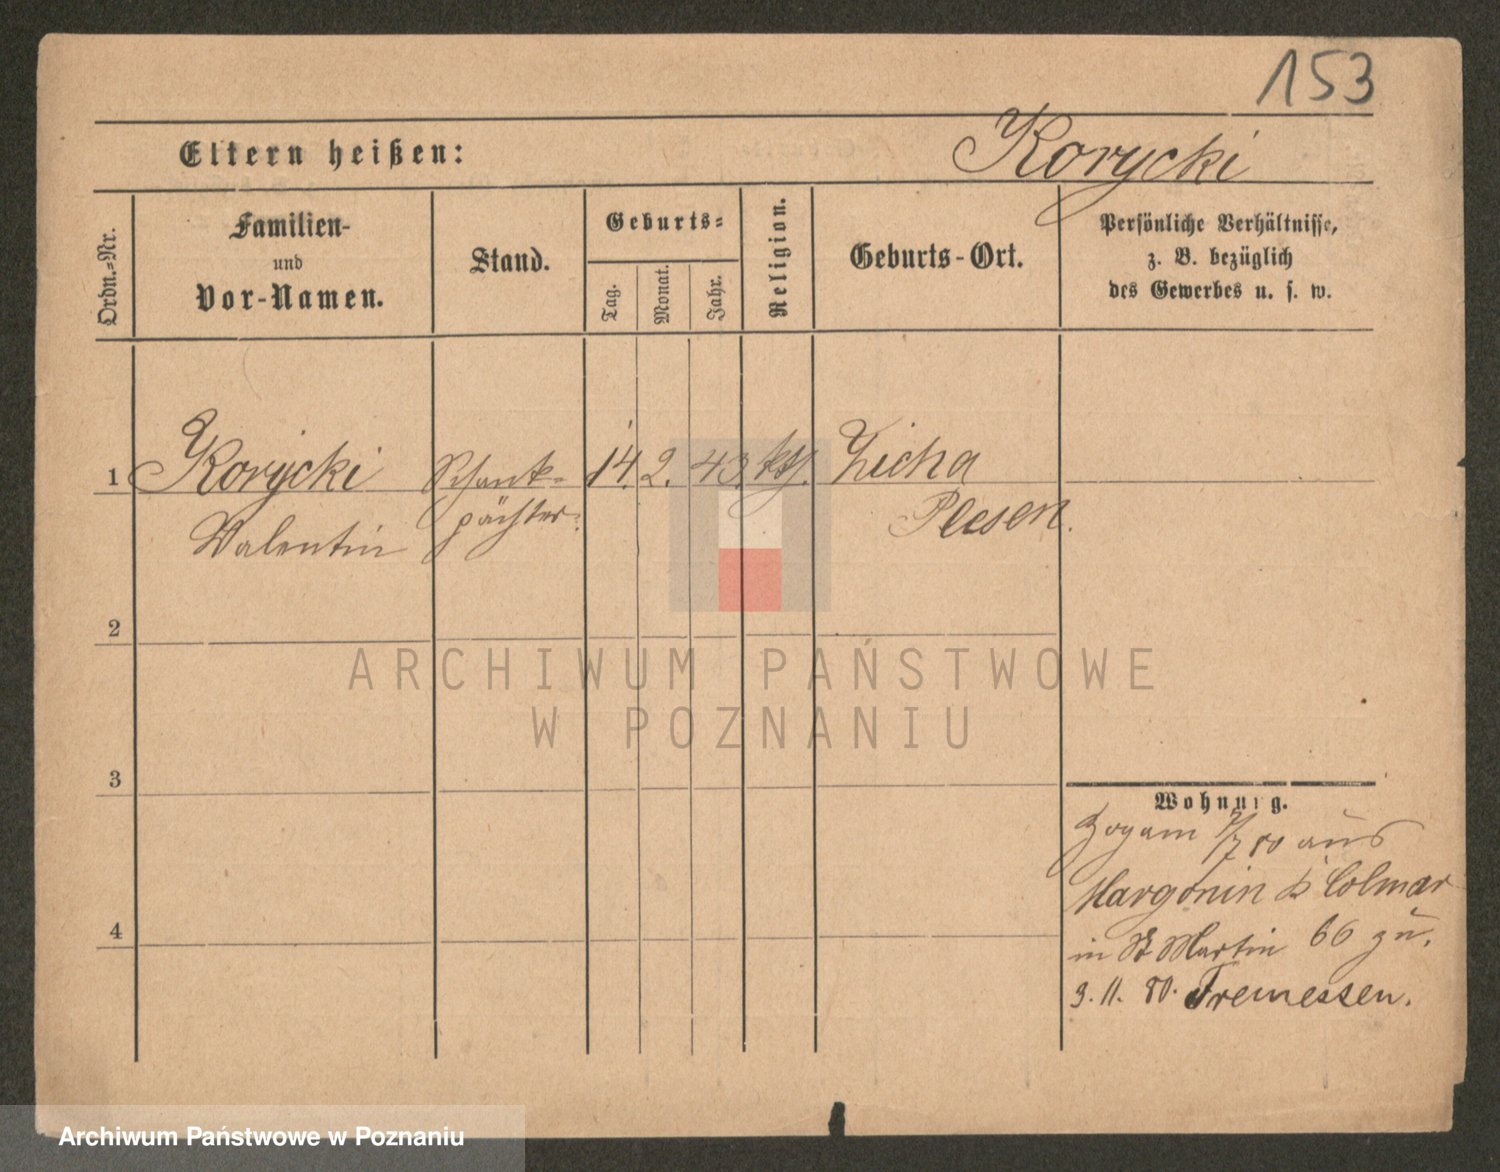 153
Eltern heißen:
Korycki
Ordn.-Nr.
Familien-
und
Vor-Namen.
Stand.
Geburts-
Tag.
Monat.
Jahr.
Religion.
Geburts-Ort.
Persönliche Verhältnisse,
z. B. bezüglich
des Gewerbes u. s. w.
1
Korycki
Schank-
14. 2. 43. kth.
Zicha
Valentin
pächter.
Plesen.
2
ARCHIWUM PAŃSTWOWE
W POZNANIU
3
Wohnung.
Zogam 7/7 80 aus
4
Margonin Colmar
in St Martin 66 zu.
3. 11. 80. Tremessen.
Archiwum Państwowe w Poznaniu